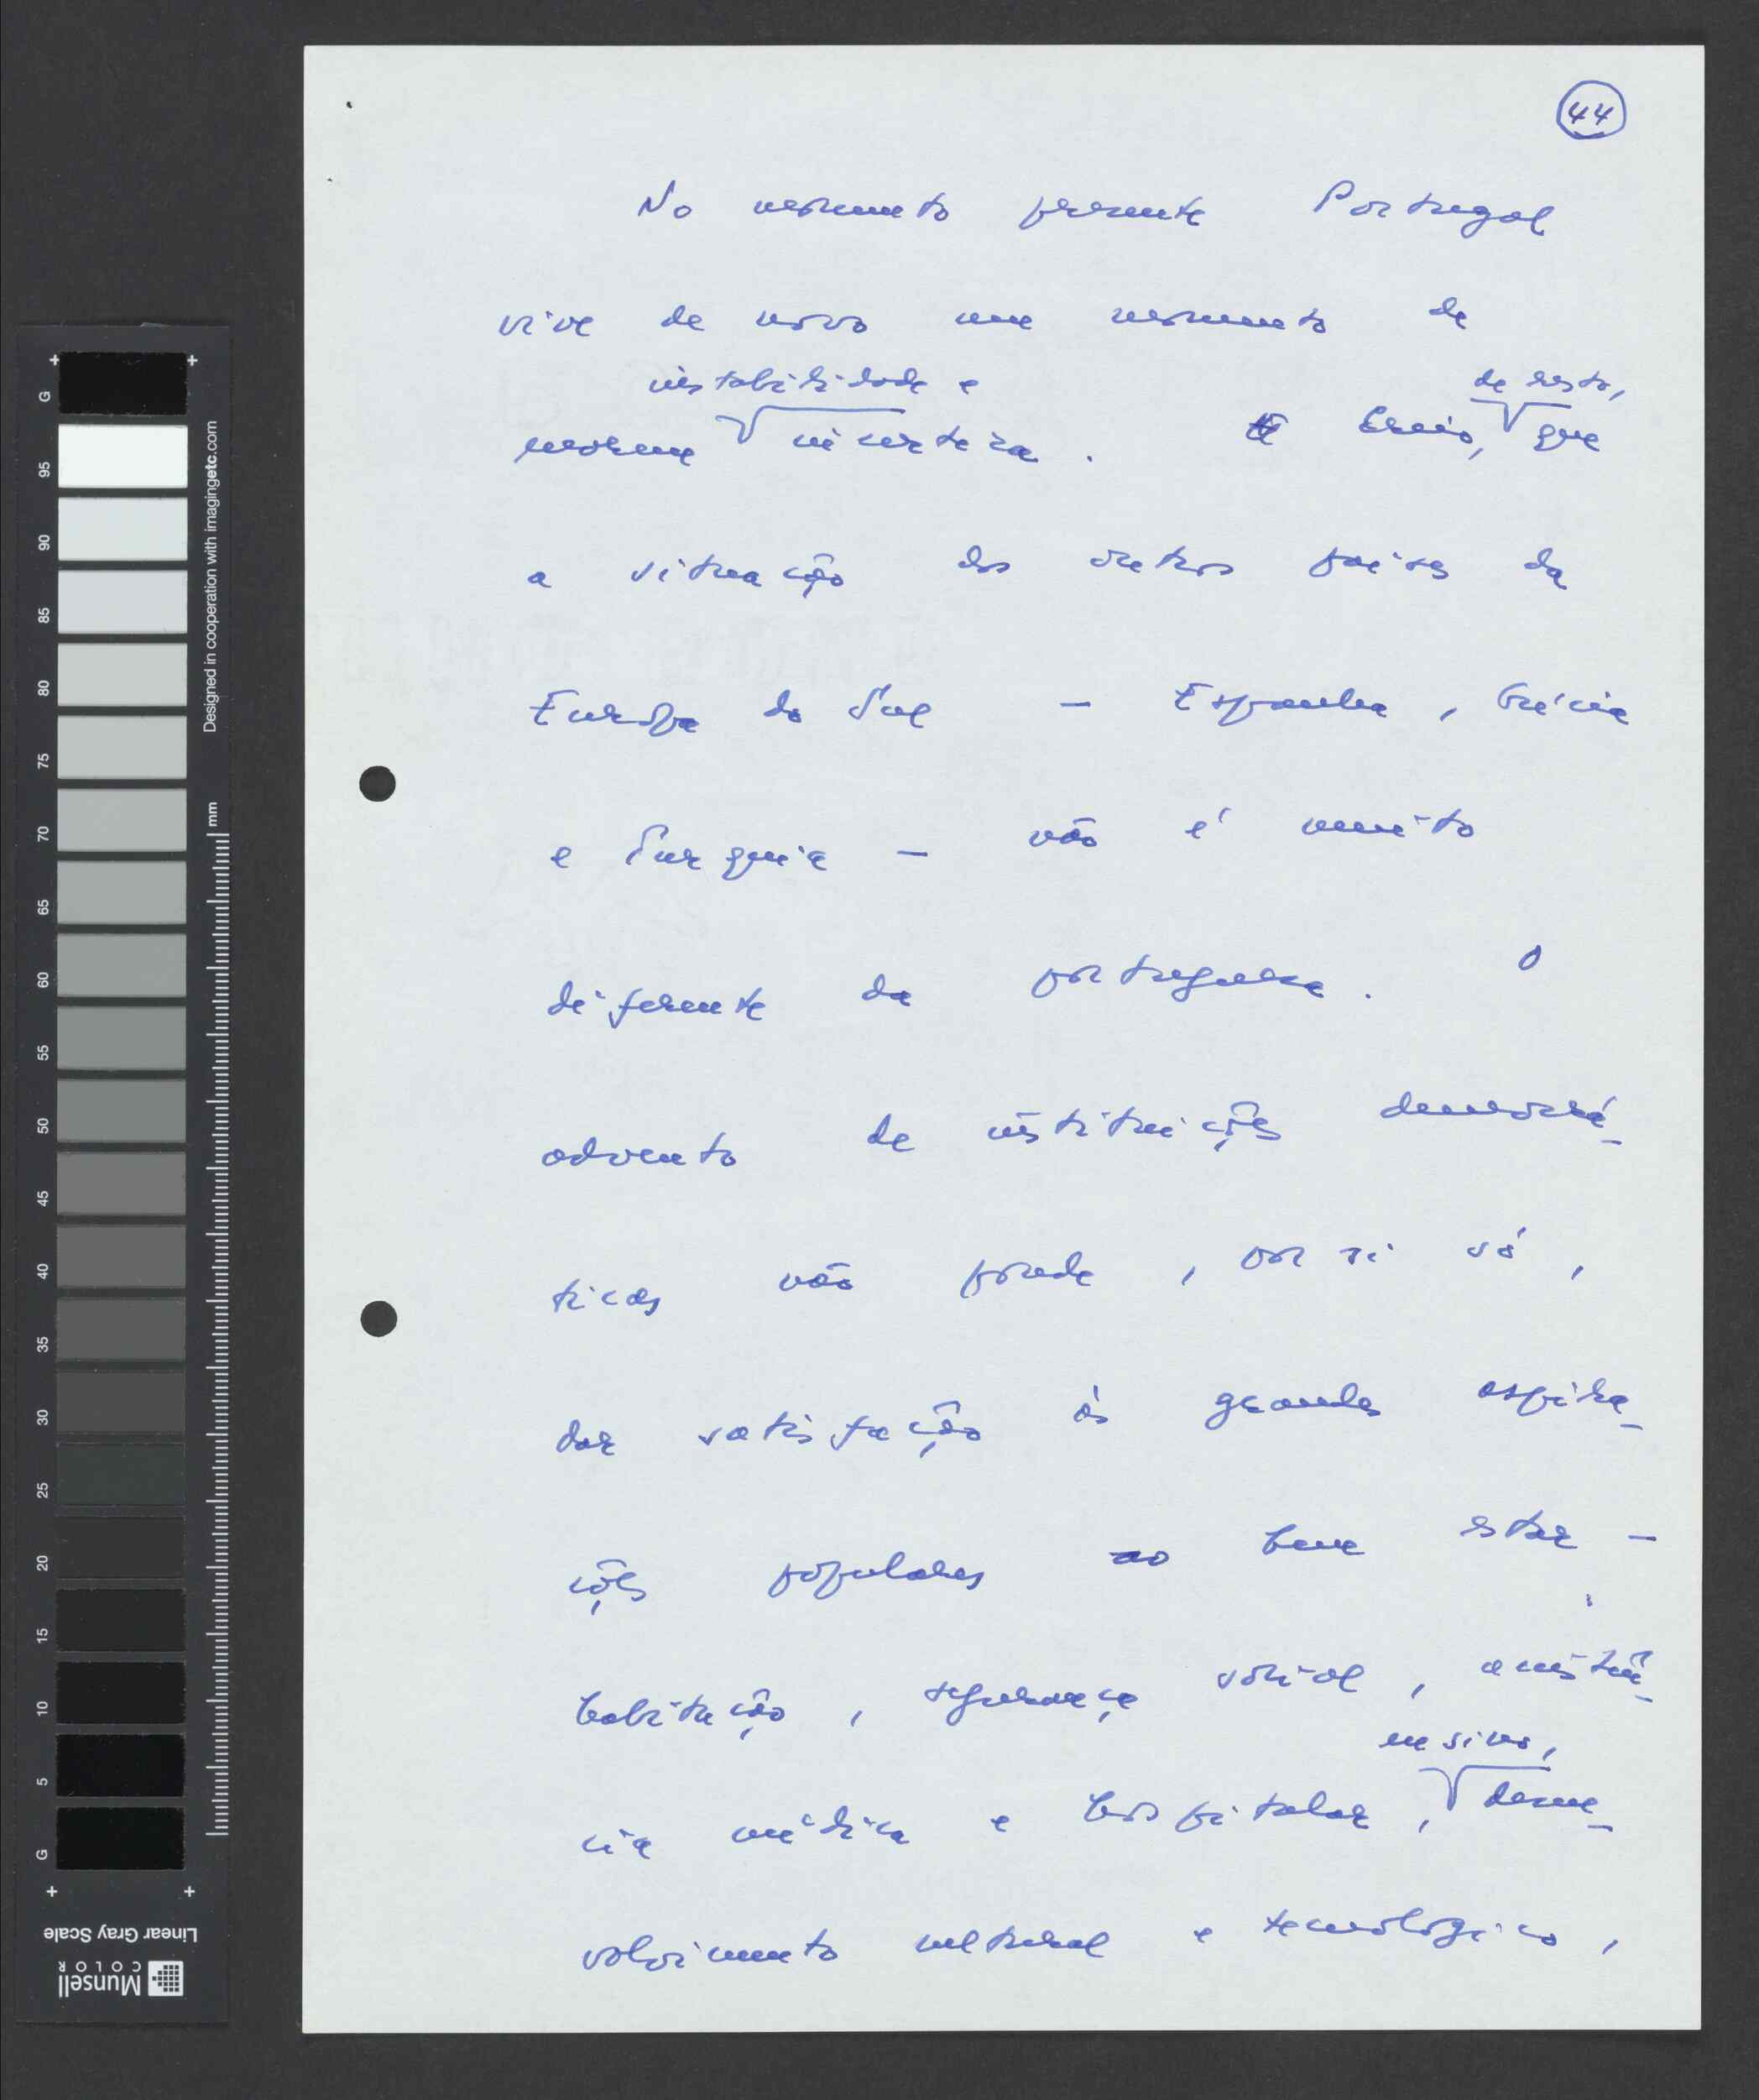 44
No momento presente Portugal
vive de novo um momento de
instabilidade e de resto,
mesmo incerteza. Creio, que
a situação dos outros países da
Europa do Sul – Espanha, Grécia
e Turquia – não é muito
diferente da portuguesa. O
advento de instituições democrá-
ticas não pode, por si só,
dar satisfação às grandes aspira-
ções populares ao bem estar –
habitação, segurança social, assistên-
cia médica e hospitalar,
ensino, desen-
volvimento cultural e tecnológico,
G
95
90
85
80
75
70
65
60
55
50
45
40
35
30
25
20
15
10
5
G
mm
Designed in cooperation with imagingetc.com
Linear Gray Scale
Munsell
COLOR